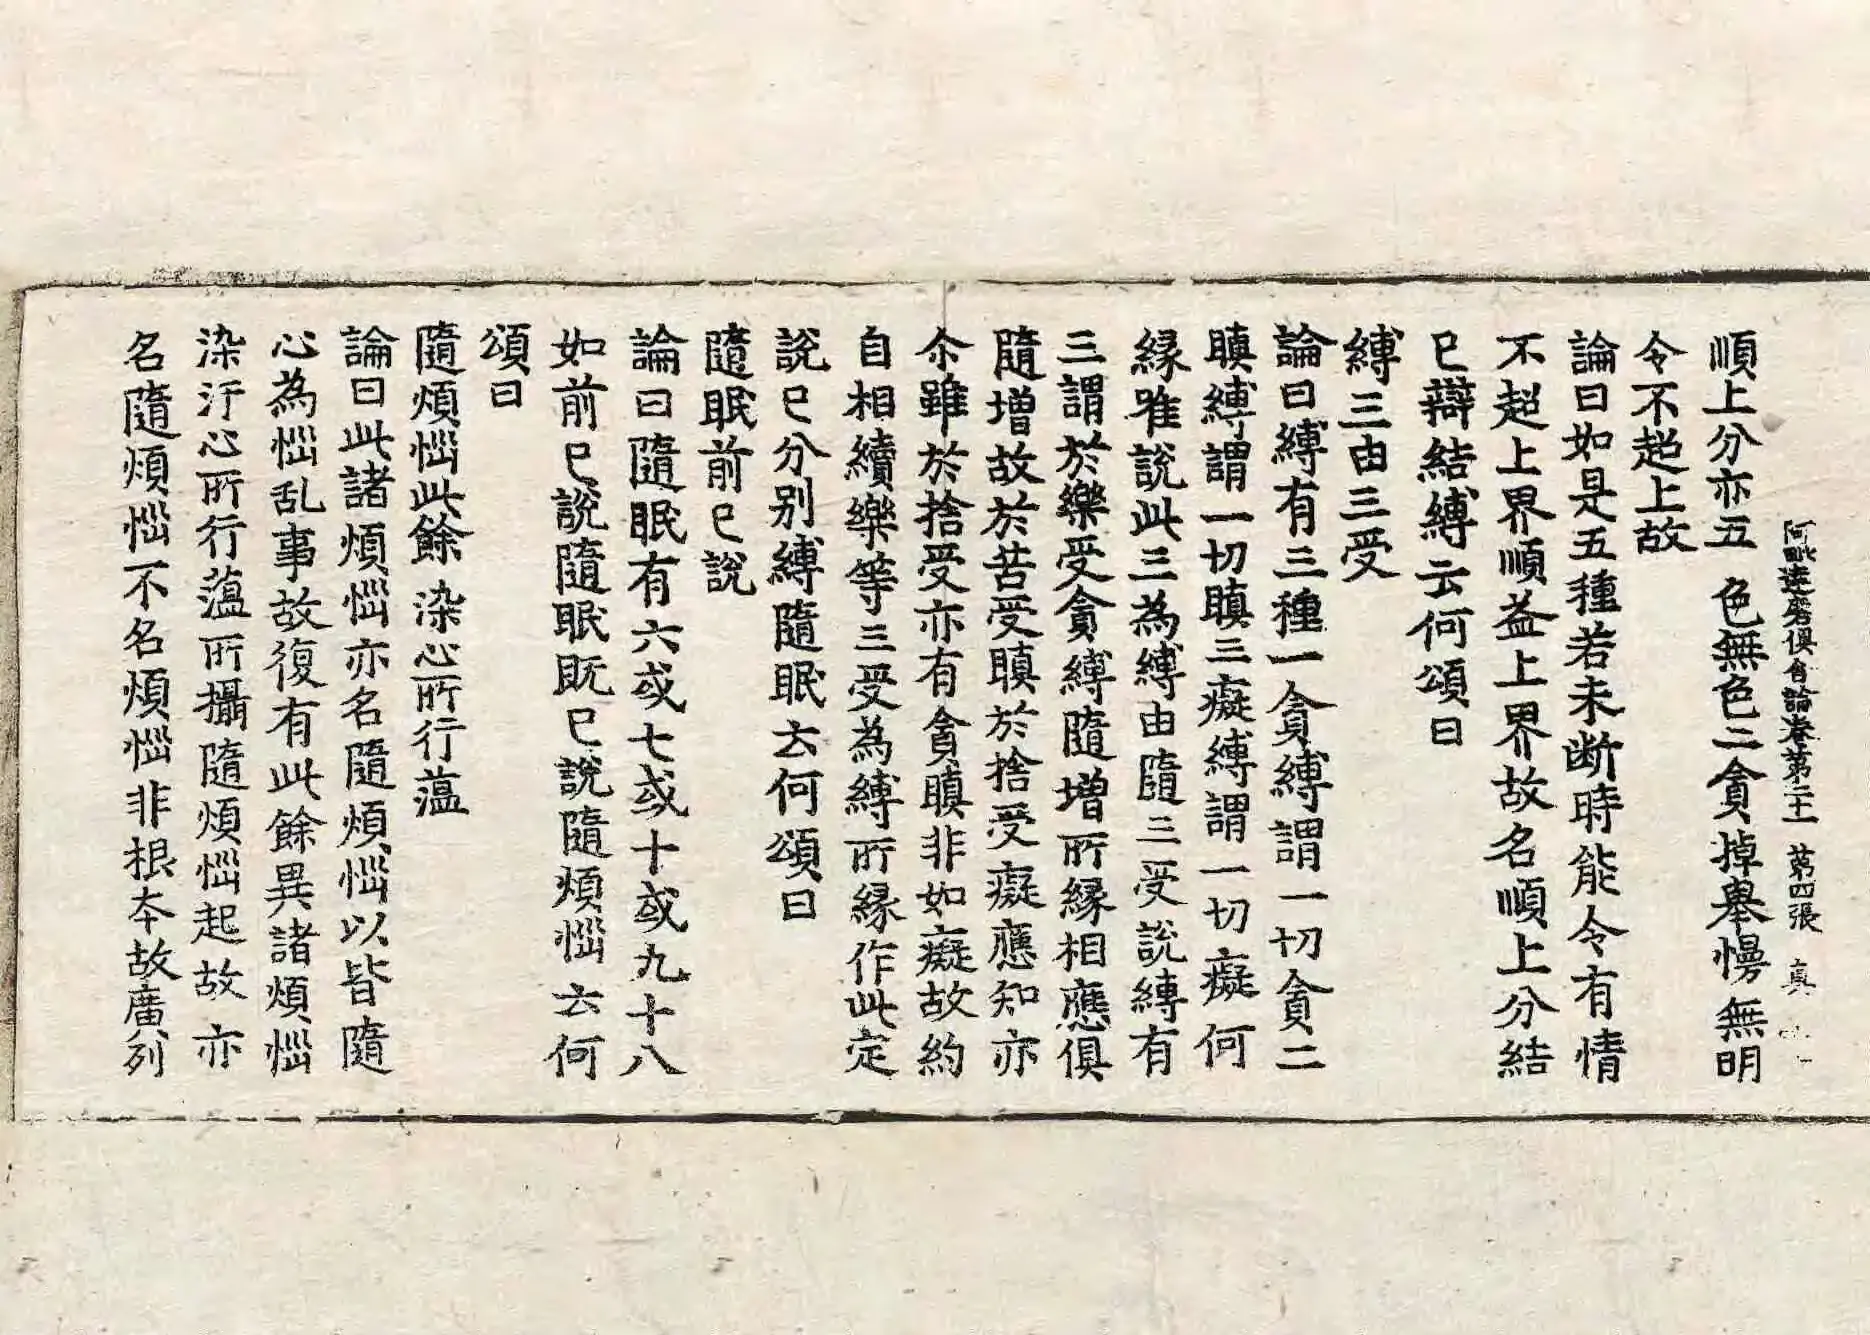 阿毗達磨俱舍論卷第二十一 第四張 真
順上分亦五 色無色二貪掉舉慢無明
令不超上故
論曰如是五種若未断時能令有情
不超上界順益上界故名順上分結
已辯結縛云何頌曰
縛三由三受
論曰縛有三種一貪縛謂一切貪二
瞋縛謂一切瞋三癡縛謂一切癡何
緣唯說此三為縛由隨三受說縛有
三謂於樂受貪縛隨增所緣相應俱
隨增故於苦受瞋於捨受癡應知亦
尒雖於捨受亦有貪瞋非如癡故約
自相續樂等三受為縛所緣作此定
說已分別縛隨眠云何頌曰
隨眠前已說
論曰隨眠有六或七或十或九十八
如前已說隨眠既已說隨煩惱云何
頌曰
隨煩惱此餘 染心所行蕰
論曰此諸煩惱亦名隨煩惱以皆隨
心為惱乱事故復有此餘異諸煩惱
染汙心所行蕰所攝隨煩惱起故亦
名隨煩惱不名煩惱非根本故廣列